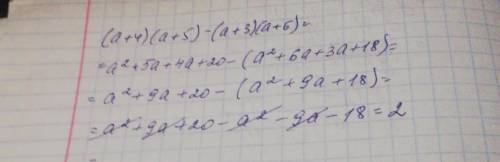 (a+4)(a+5)-(a+3)(a+6)=
=a²+5a+4a+20-(a²+6a+3a+18)=
=a²+9a+20-(a²+9a+18)=
=a²+9a+20-a²-9a-18=2